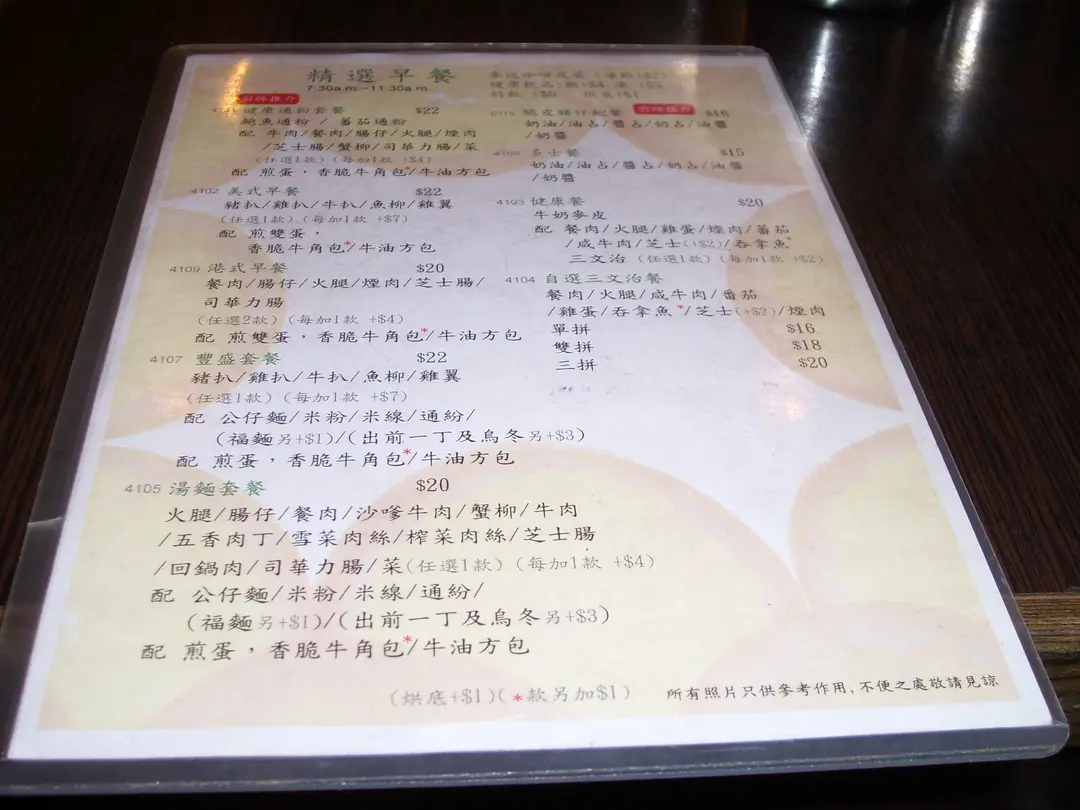 精選早餐
7:30a.m.-11:30a.m.
廚師推介
健康通粉套餐 $22
鮑魚通粉 / 蕃茄通粉
配 牛肉/餐肉/腸仔/火腿/煙肉
/芝士腸/蟹柳/司華力腸/菜
(任選1款) (每加1款 +$4)
配 煎蛋，香脆牛角包*/牛油方包
4102 美式早餐 $22
豬扒/雞扒/牛扒/魚柳/雞翼
(任選1款) (每加1款 +$7)
配 煎雙蛋，
香脆牛角包*/牛油方包
4109 港式早餐 $20
餐肉/腸仔/火腿/煙肉/芝士腸/
司華力腸
(任選2款) (每加1款 +$4)
配 煎雙蛋，香脆牛角包*/牛油方包
4107 豐盛套餐 $22
豬扒/雞扒/牛扒/魚柳/雞翼
(任選1款) (每加1款 +$7)
配 公仔麵/米粉/米線/通紛/
(福麵另+$1)/(出前一丁及烏冬另+$3)
配 煎蛋，香脆牛角包*/牛油方包
4105 湯麵套餐 $20
火腿/腸仔/餐肉/沙嗲牛肉/蟹柳/牛肉
/五香肉丁/雪菜肉絲/榨菜肉絲/芝士腸
/回鍋肉/司華力腸/菜(任選1款) (每加1款 +$4)
配 公仔麵/米粉/米線/通紛/
(福麵另+$1)/(出前一丁及烏冬另+$3)
配 煎蛋，香脆牛角包*/牛油方包
廚師推介
脆皮豬仔飽餐 $16
奶油/油占/醬占/奶占/油醬
/奶醬
多士餐 $15
奶油/油占/醬占/奶占/油醬
/奶醬
4103 健康餐 $20
牛奶麥皮
配 餐肉/火腿/雞蛋/煙肉/蕃茄
/咸牛肉/芝士(+$2)/吞拿魚*
三文治 (任選1款) (每加1款 +$2)
4104 自選三文治餐
餐肉/火腿/咸牛肉/番茄
/雞蛋/吞拿魚*/芝士(+$2)/煙肉
單拼 $16
雙拼 $18
三拼 $20
(烘底+$1)(*款另加$1)
所有照片只供參考作用,不便之處敬請見諒